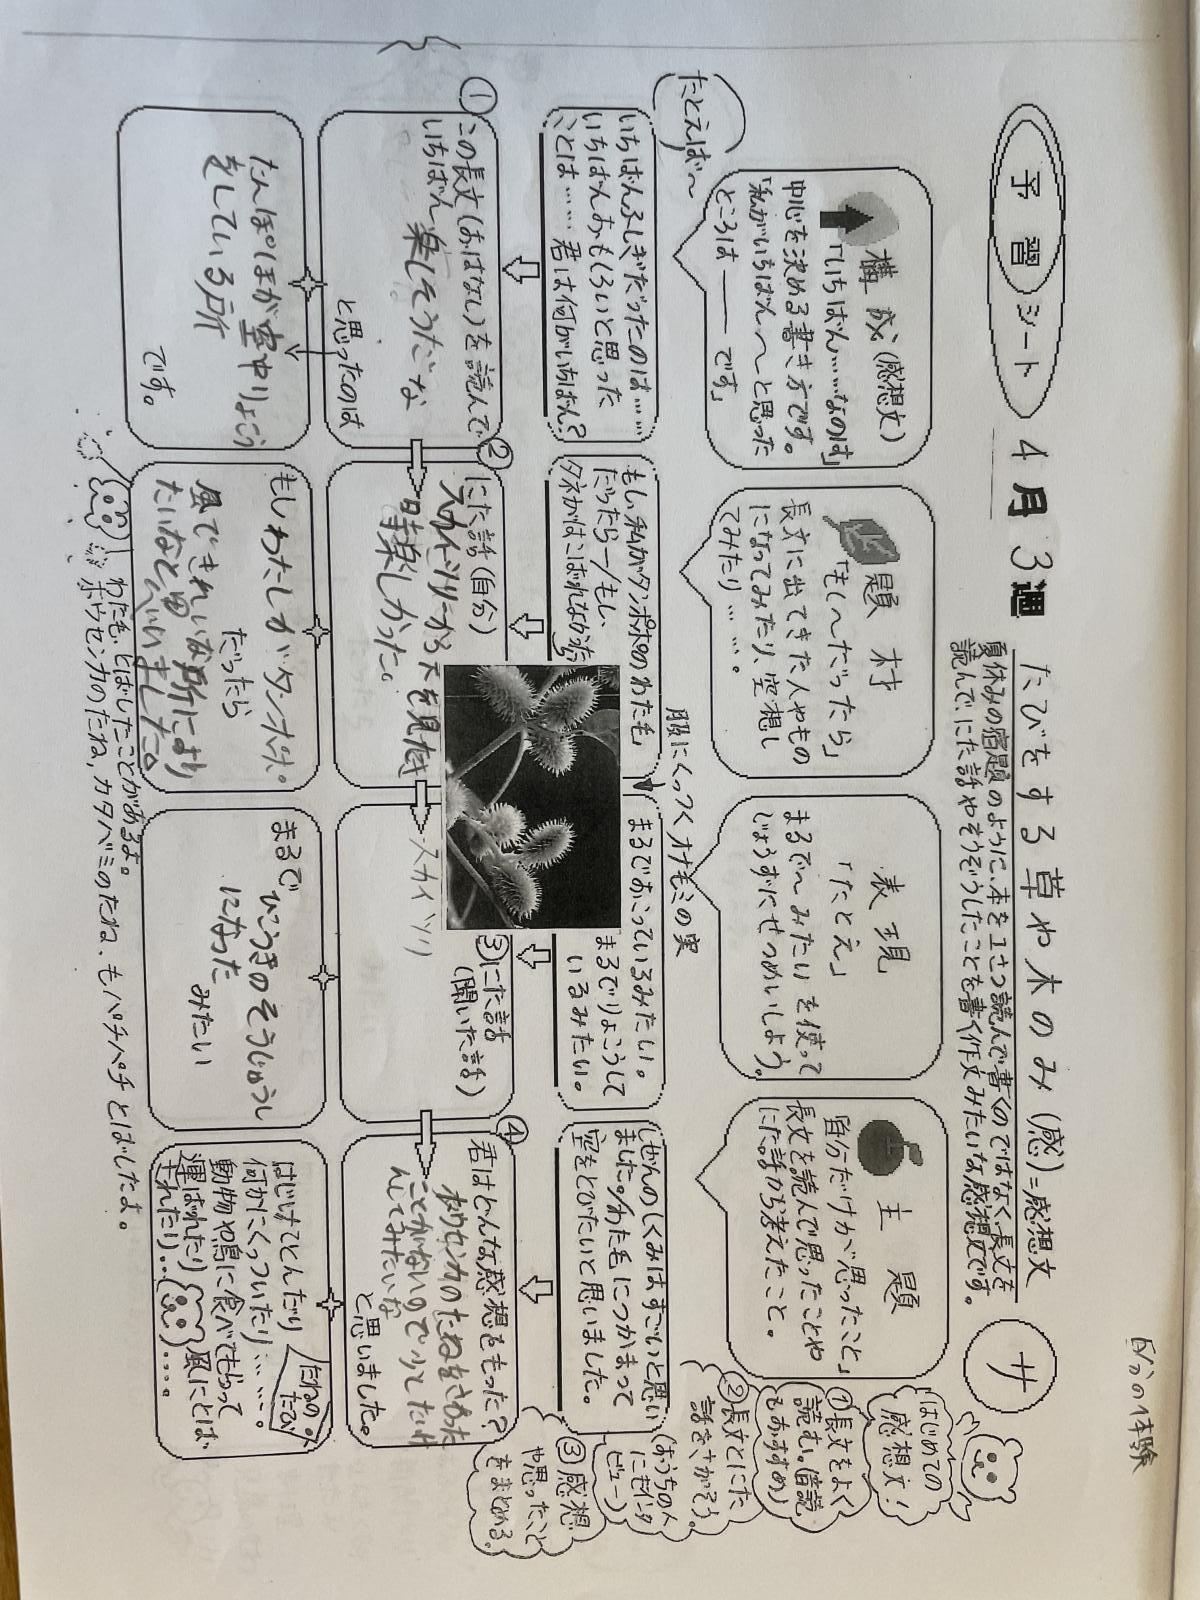 自分の体験
予習シート
4月3週
たびをする草や木のみ(感)=感想文
サ
夏休みの宿題のように、本を1さつ読んで書くのではなく長文を
読んでにた話やそうぞうしたことを書く作文みたいな感想文です。
はじめての
感想文!
①長文をよく
読む。(音読
もおすすめ)
②長文とにた
話をさがそう。
(おうちの人
にもインタ
ビュー)
③感想
や思ったこと
をまとめる。
構成(感想文)
「いちばん……なのは」
中心を決める書き方です。
「私がいちばん〜と思った
ところは――です」
題材
「もし〜だったら」
長文に出てきた人やもの
になってみたり、空想し
てみたり……。
表現
「たとえ」
まるで〜みたい を使って
じょうずにせつめいしよう。
主題
「自分だけが思ったこと」
長文を読んで思ったことや
にた話から考えたこと。
たとえば〜
いちばんふしぎだったのは……
いちばんおもしろいと思った
ことは……君は何がいちばん?
もし、私がタンポポのわた毛
だったら―/もし、
タネがはこばれなかったら
服にくっつくオナモミの実
まるでおこっているみたい。
まるでりょこうして
いるみたい。
しぜんのしくみはすごいと思い
ました。/わた毛につかまって
空をとびたいと思いました。
①
この長文(おはなし)を読んで
いちばん楽しそうだな
と思ったのは
たんぽぽが空中りょこう
をしている所
です。
②
にた話(自分)
スカイツリーから下を見た
時楽しかった。
もしわたしがタンポポ
だったら
風できれいな所により
たいなと思いました。
スカイツリ
③にた話
(聞いた話)
まるで ひこうきのそうじゅうし
になった
みたい
④
君はどんな感想をもった?
ホウセンカのたねをさわった
ことがないのでりょうたけ
んしてみたいな
と思いました。
たねの
たび
はじけてとんだり
何かにくっついたり……。
動物や鳥に食べてもらって
運ばれたり 風にとば
されたり……。
わた毛、とばしたことがあるよ。
ホウセンカのたね、カタバミのたね、もパチパチとばしたよ。